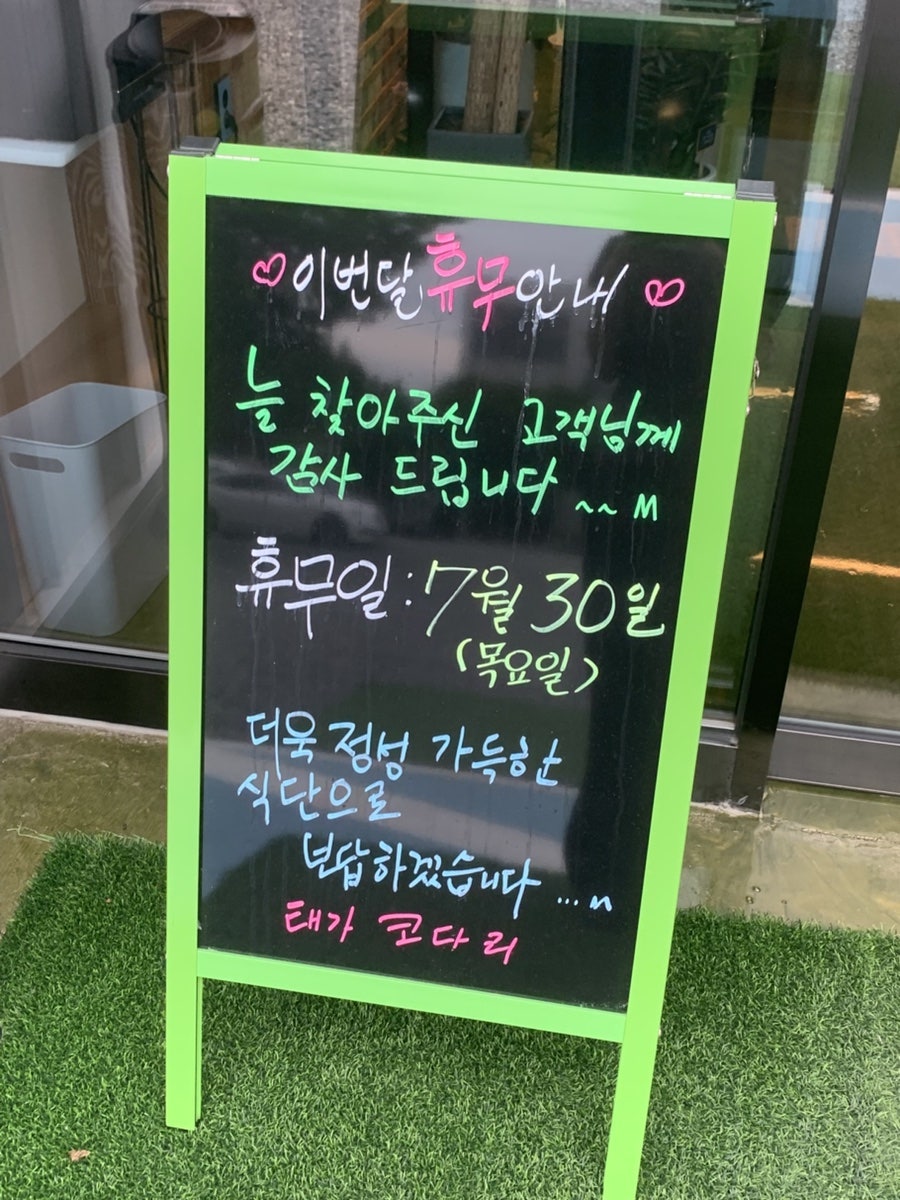 ♡이번달 휴무 안내♡
늘 찾아주신 고객님께
감사 드립니다 ~~ M
휴무일 : 7월 30일
(목요일)
더욱 정성 가득한
식단으로
보답하겠습니다 ... m
태가 코다리